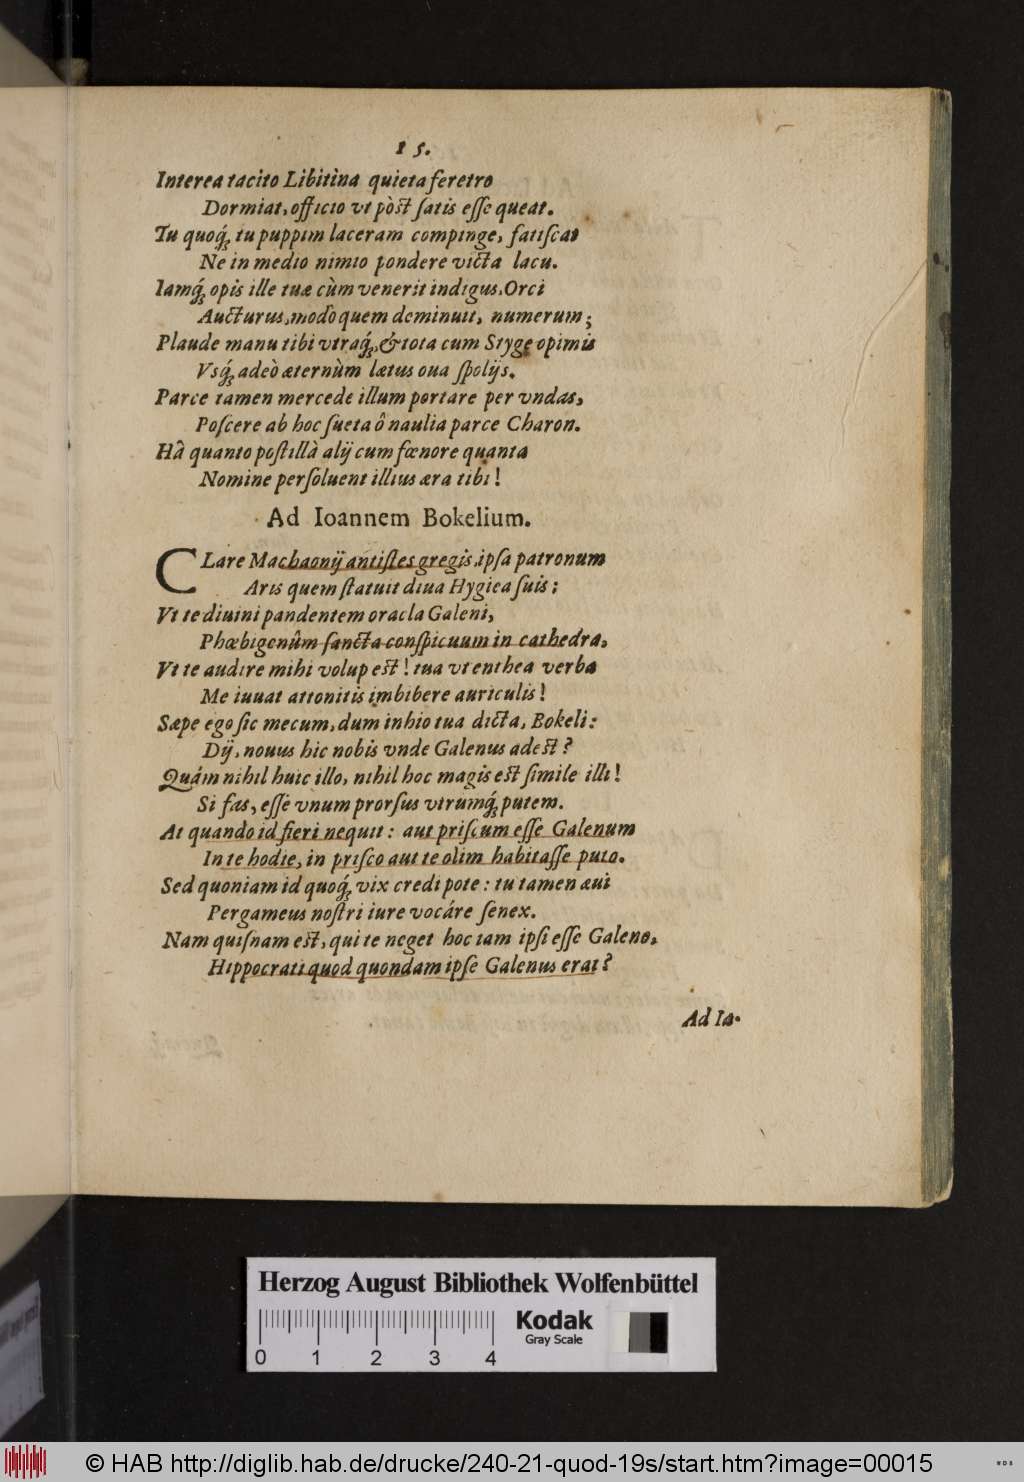 15.
Interea tacito Libitina quieta feretro
Dormiat, officio vt pòst satis esse queat.
Tu quoq́; tu puppim laceram compinge, fatiscat
Ne in medio nimio pondere victa lacu.
Iamq́; opis ille tuæ cùm venerit indigus, Orci
Aucturus, modò quem deminuit, numerum;
Plaude manu tibi vtraq́;, & tota cum Styge opimis
Vsq́; adeò æternùm lætus oua spolijs.
Parce tamen mercede illum portare per vndas,
Poscere ab hoc sueta ô naulia parce Charon.
Hâ quanto postillà alij cum fœnore quanta
Nomine persoluent illius æra tibi!
Ad Ioannem Bokelium.
CLare Machaonij antistes gregis, ipsa patronum
Aris quem statuit diua Hygiea suis;
Vt te diuini pandentem oracla Galeni,
Phœbigenûm sancta conspicuum in cathedra,
Vt te audire mihi volup est! tua vt enthea verba
Me iuuat attonitis imbibere auriculis!
Sæpe ego sic mecum, dum inhio tua dicta, Bokeli:
Dij, nouus hic nobis vnde Galenus adest?
Quám nihil huic illo, nihil hoc magis est simile illi!
Si fas, esse vnum prorsus vtrumq́; putem.
At quando id fieri nequit: aut priscum esse Galenum
In te hodie, in prisco aut te olim habitasse puto.
Sed quoniam id quoq́; vix credi pote: tu tamen æui
Pergameus nostri iure vocáre senex.
Nam quisnam est, qui te neget hoc iam ipsi esse Galeno,
Hippocrati quod quondam ipse Galenus erat?
Ad Ia-
Herzog August Bibliothek Wolfenbüttel
Kodak
Gray Scale
0 1 2 3 4
© HAB http://diglib.hab.de/drucke/240-21-quod-19s/start.htm?image=00015
WDB